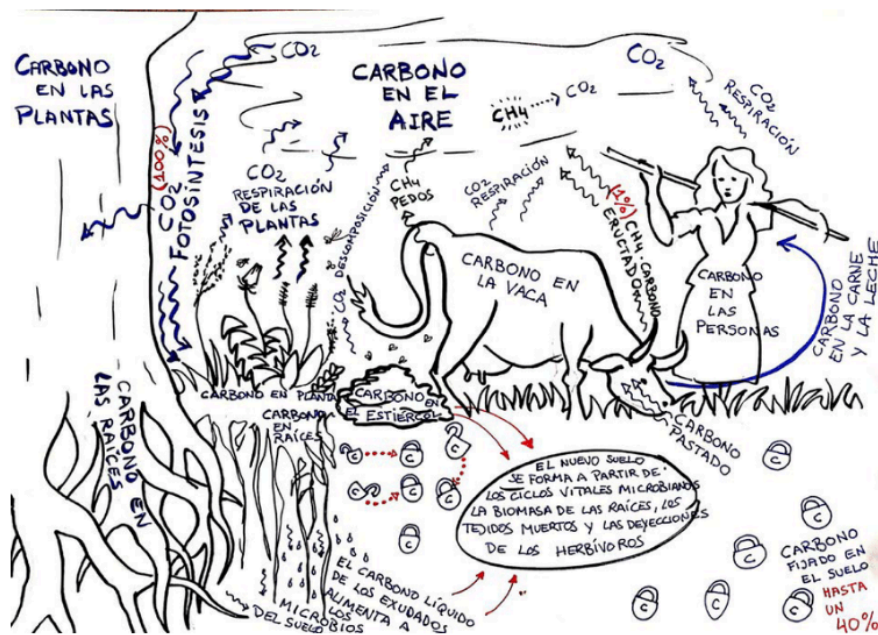 CARBONO
EN LAS
PLANTAS
CO2
(100%)
CO2
FOTOSÍNTESIS
CARBONO
EN EL
AIRE
CH4
CO2
CO2
CO2
RESPIRACIÓN
CO2
RESPIRACIÓN
DE LAS
PLANTAS
CO2 DESCOMPOSICIÓN
CH4
PEDOS
CO2
RESPIRACIÓN
(1%) CH4 · CARBONO
ERUCTADO
CARBONO EN
LA VACA
CARBONO
EN
LAS
PERSONAS
CARBONO
EN LA CARNE
Y LA LECHE
CARBONO EN
LAS RAÍCES
CARBONO EN PLANTA
CARBONO
EN
RAÍCES
CARBONO EN
EL ESTIÉRCOL
CARBONO
PASTADO
C
C
C
C
C
C
C
C
C
C
C
C
EL NUEVO SUELO
SE FORMA A PARTIR DE:
LOS CICLOS VITALES MICROBIANOS
LA BIOMASA DE LAS RAÍCES, LOS
TEJIDOS MUERTOS Y LAS DEYECCIONES
DE LOS HERBÍVOROS
EL CARBONO LÍQUIDO
DE LOS EXUDADOS
ALIMENTA A
LOS
MICROBIOS
DEL SUELO
CARBONO
FIJADO EN
EL SUELO
HASTA
UN
40%